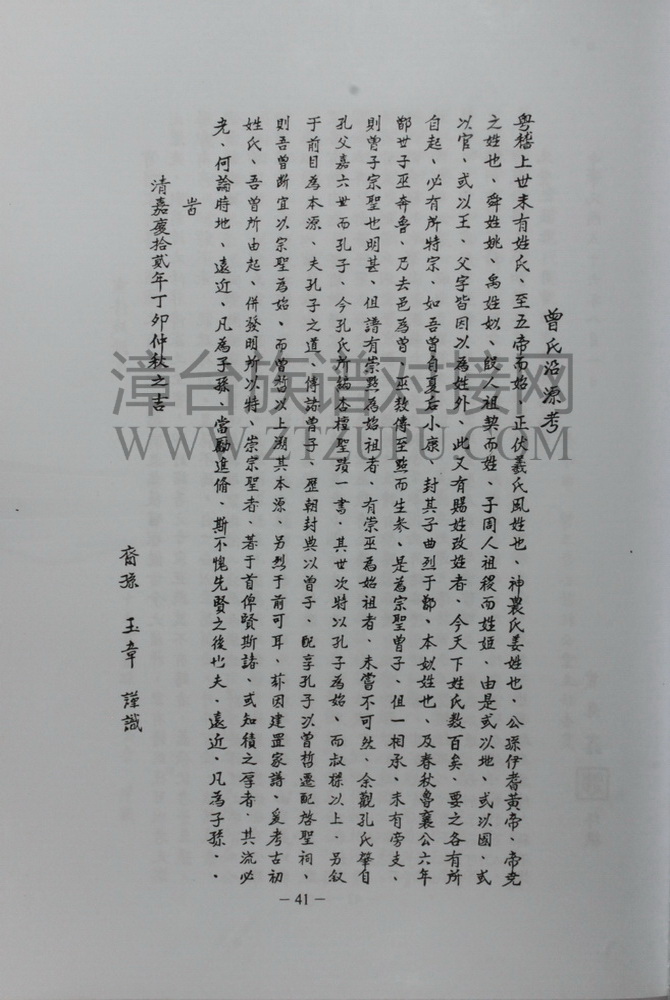 曾氏沿源考
粵嵇上世未有姓氏、至五帝而始、正伏羲氏風姓也、神農氏姜姓也、公孫伊耆黃帝、帝堯
之姓也、舜姓姚、禹姓姒、殷人祖契而姓、子周人祖稷而姓姬、由是或以地、或以國、或
以官、或以王、父字皆因以為姓外、此又有賜姓改姓者、今天下姓氏數百矣、要之各有所
自起、必有所特宗、如吾曾自夏后小康、封其子曲烈于鄫、本姒姓也、及春秋魯襄公六年
鄫世子巫奔魯、乃去邑為曾、巫數傳至點而生參、是為宗聖曾子、但一相承、未有旁支、
則曾子宗聖也明甚、但譜有崇點為始祖者、有崇巫為始祖者、未嘗不可然、余觀孔氏肇自
孔父嘉六世而孔子、今孔氏所編杏檀聖蹟一書、其世次特以孔子為始、而叔樑以上、另叙
于前目為本源、夫孔子之道、傳諸曾子、歷朝封典以曾子、配享孔子以曾晳遷配啓聖祠、
則吾曾斷宜以宗聖為始、而曾晳以上溯其本源、另烈于前可耳、茲因建置家譜、爰考古初
姓氏、吾曾所由起、併發明所以特、崇宗聖者、著于首俾賢斯諸、或知積之厚者、其流必
光、何論時地、遠近、凡為子孫、當勵進脩、斯不愧先賢之後也夫、遠近、凡為子孫、、
旹
清嘉慶拾貳年丁卯仲秋之吉
裔孫 玉章 謹識
— 41 —
漳台族谱对接网
WWW.ZTZUPU.COM